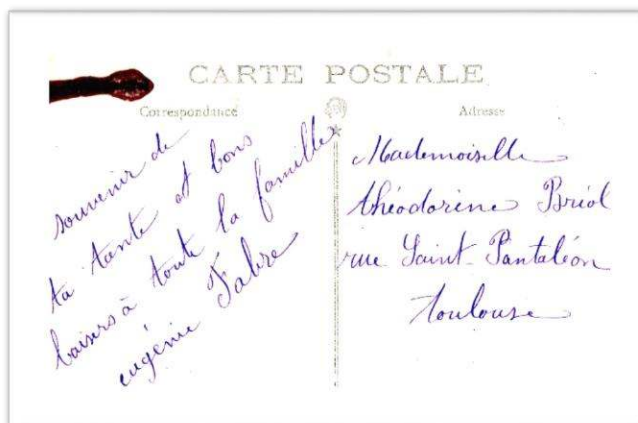 CARTE POSTALE
Correspondance
Adresse
souvenir de
ta tante et bons
baisers à toute la famille
eugénie Fabre
Mademoiselle
théodorine Briol
rue Saint-Pantaléon
toulouse